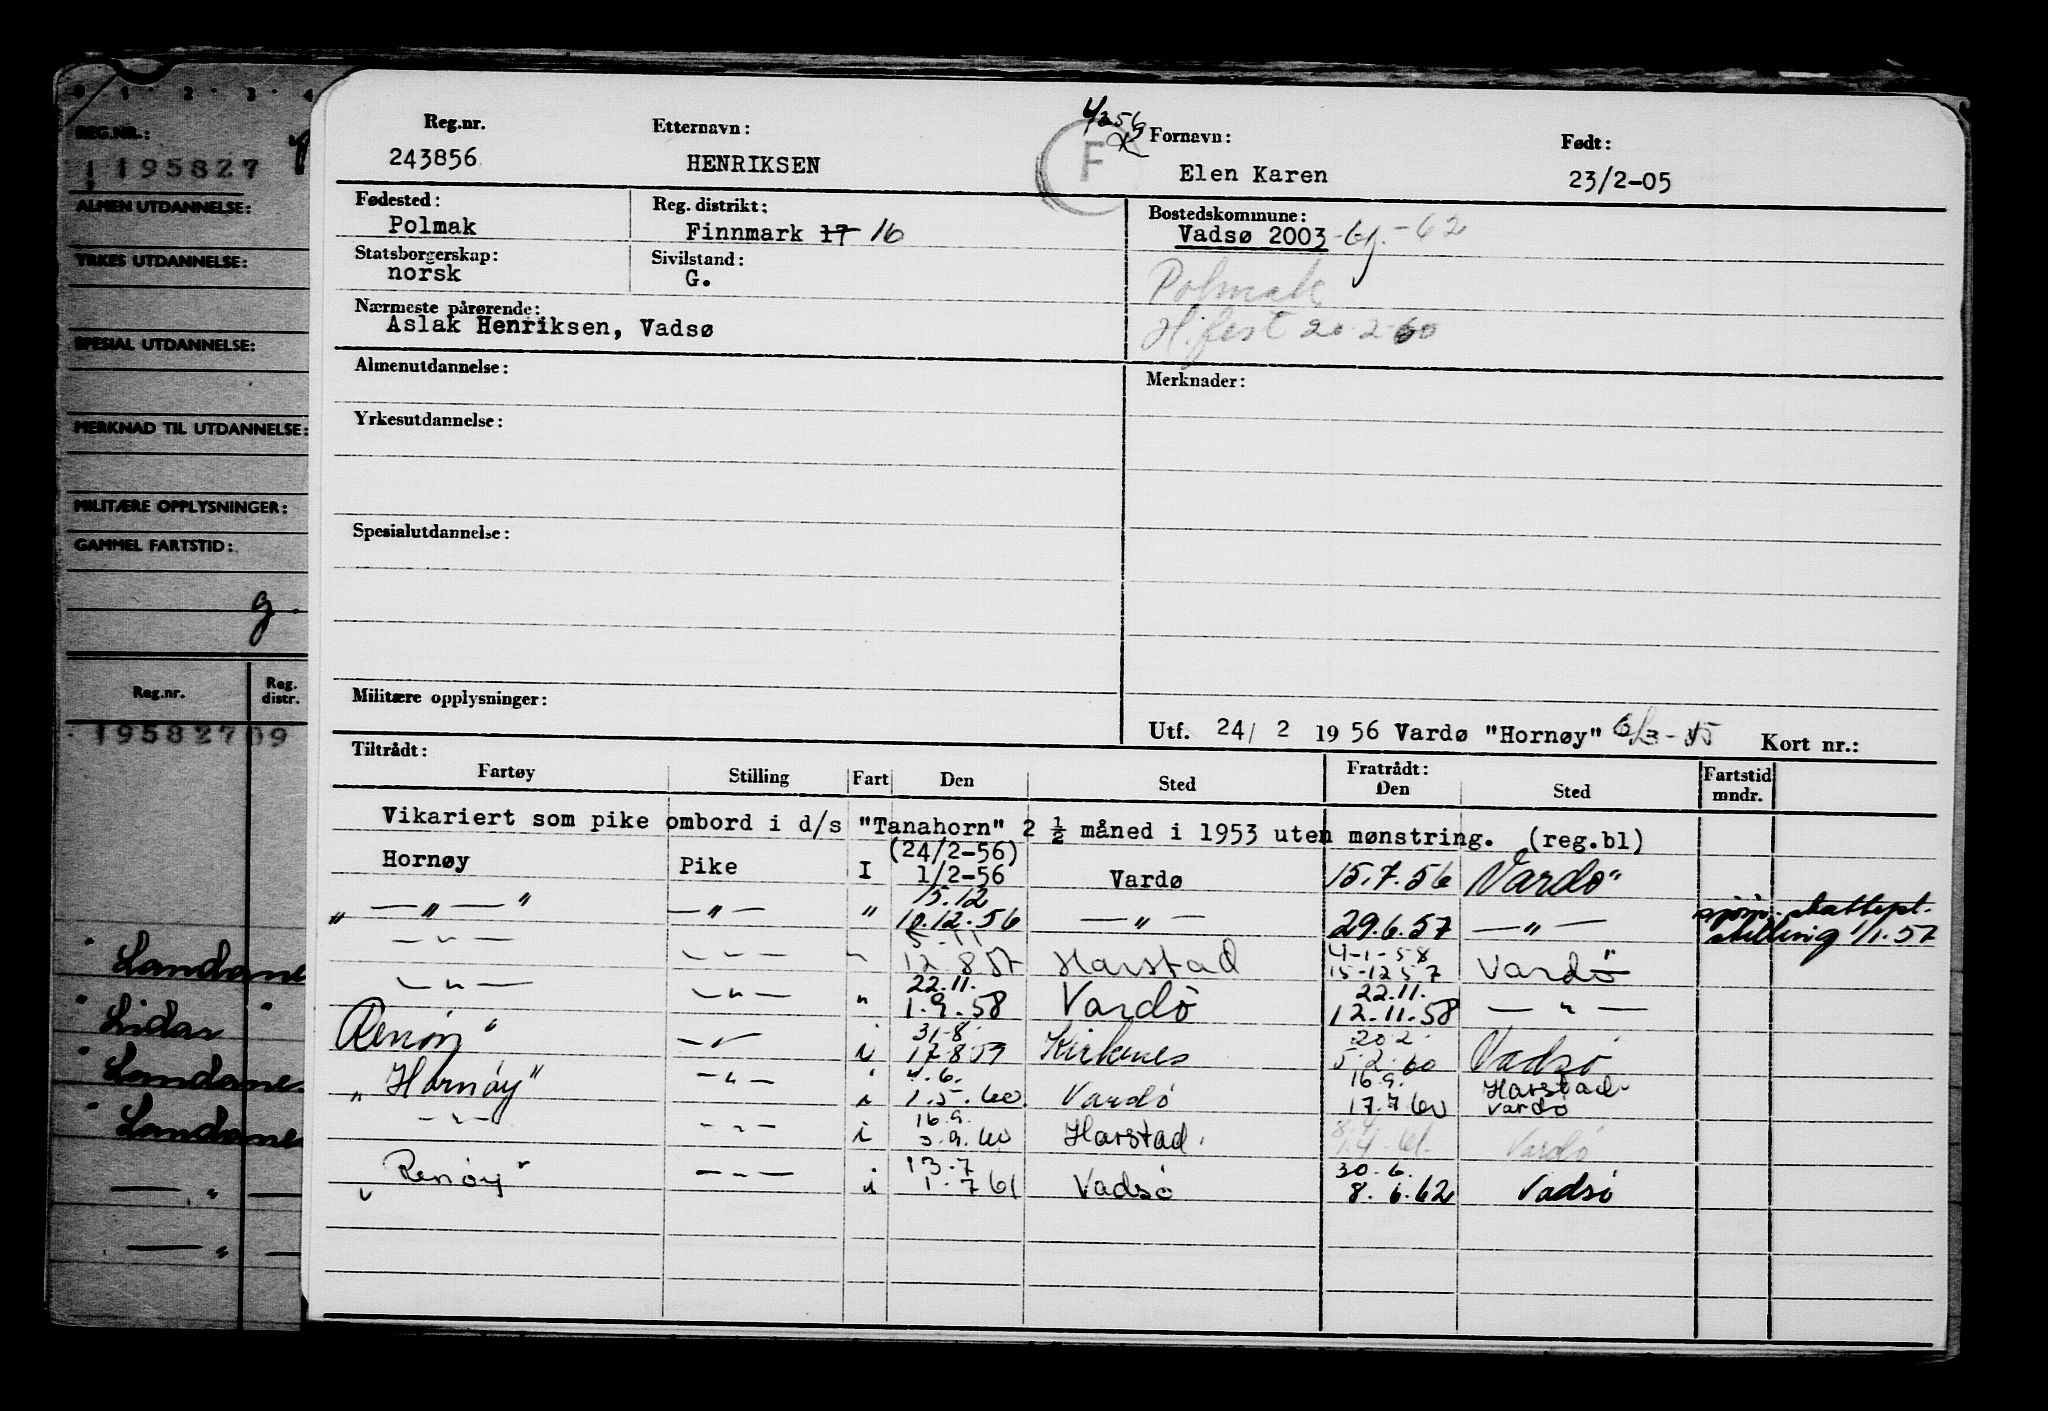 0 1 2 3 4
REG.NR.:
195827
ALMEN UTDANNELSE:
YRKES UTDANNELSE:
SPESIAL UTDANNELSE:
MERKNAD TIL UTDANNELSE:
MILITÆRE OPPLYSNINGER:
GAMMEL FARTSTID:
g.
Reg.nr. Reg. distr.
195827 09
" Landane
" Lidar "
" Landane
" Landane
— " —
— " —
Reg.nr. Etternavn: F Fornavn: Født:
243856 HENRIKSEN Elen Karen 23/2-05
Fødested: Reg. distrikt: Bostedskommune:
Polmak Finnmark 17 16 Vadsø 2003 -62
Statsborgerskap: Sivilstand:
norsk G. Polmak
Nærmeste pårørende:
Aslak Henriksen, Vadsø H.fest 20-2-60
Almenutdannelse: Merknader:
Yrkesutdannelse:
Spesialutdannelse:
Militære opplysninger:
Utf. 24/ 2 1956 Vardø "Hornøy" Kort nr.:
Tiltrådt: Fratrådt: Fartstid
Fartøy Stilling Fart Den Sted Den Sted mndr.
Vikariert som pike ombord i d/s "Tanahorn" 2 ½ måned i 1953 uten mønstring. (reg.bl)
(24/2-56)
Hornøy Pike I 1/2-56 Vardø 15.7.56 Vardø"
15.12
" — " — " — " — " 10.12.56 — " — 29.6.57 — " — stilling 1/1.57
5-11 4-1-58
— " — — " — " 12 8 57 Harstad 15-12 57 Vardø"
22.11. 22.11.
— " — — " — " 1.9.58 Vardø 12.11.58 — " —
31-8 20 2
Renøy" — " — i 17-8 59 Kirkenes 5.2.60 Vadsø
4.6. 16.9. Harstad
" Hornøy" — " — i 1.5.60 Vardø 17.7 60 Vardø
16.9. 8.4.
— " — — " — i 3.9.60 Harstad. 61. Vardø
13.7 30.6.
" Renøy" — " — i 1.7 61 Vadsø 8.6.62 Vadsø